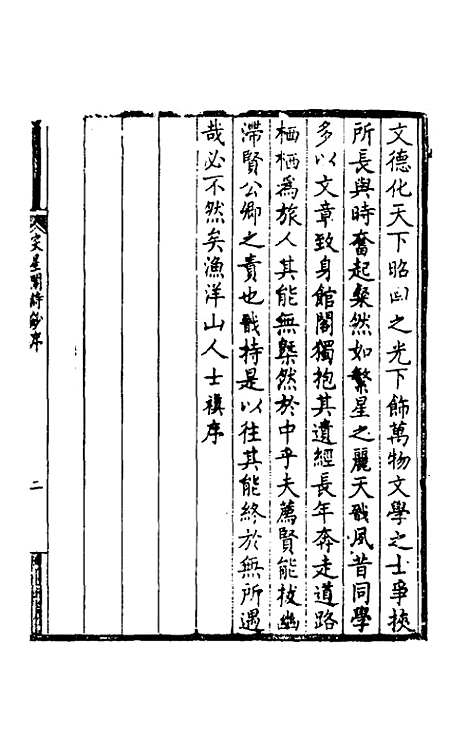 文德化天下昭回之光下飾萬物文學之士爭挾
所長與時奮起粲然如繁星之麗天戩夙昔同學
多以文章致身館閣獨抱其遺經長年奔走道路
栖栖為旅人其能無槩然於中乎夫薦賢能拔幽
滯賢公卿之責也戩持是以往其能終於無所遇
哉必不然矣漁洋山人士禛序
文星閣詩鈔序
二